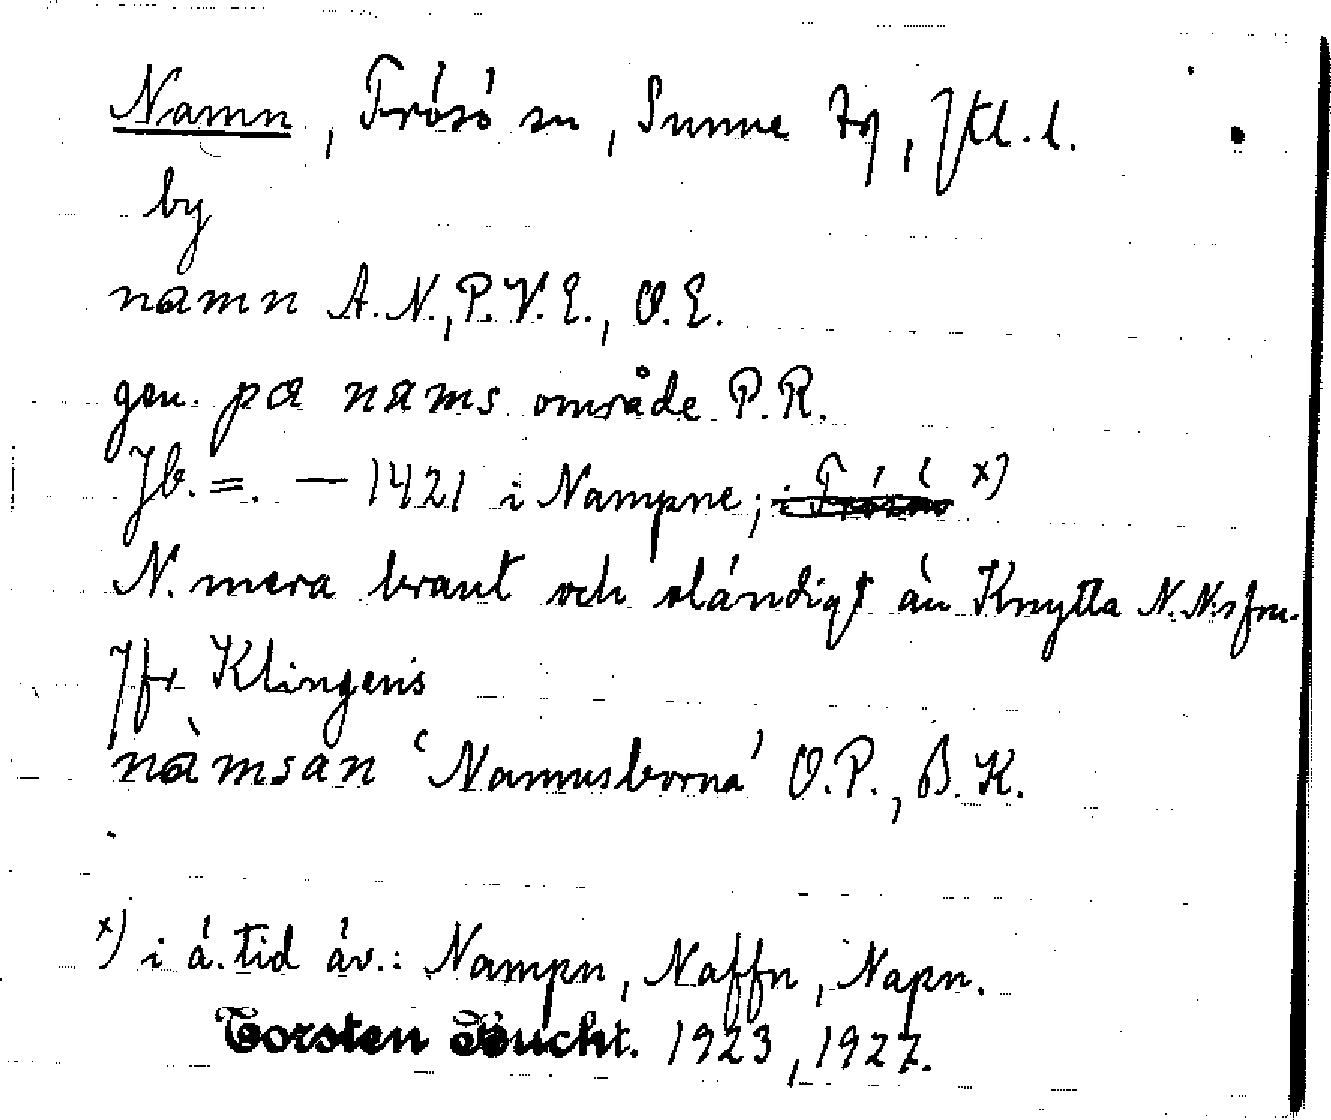 Namn, Frösö sn, Sunne tg, Jtl. l.
by
namn A.N., P.V.E., O.E.
gen. pa nams område P.R.
Jb. =. — 1421 i Nampne; i Frösö x)
N. mera brant och oländigt än Knytta N.N.sfm.
Jfr Klingens
nàmsan 'Namnsborna' O.P., B.K.
x) i ä. tid äv.: Nampn, Naffn, Napn.
Torsten Bucht. 1923, 1927.